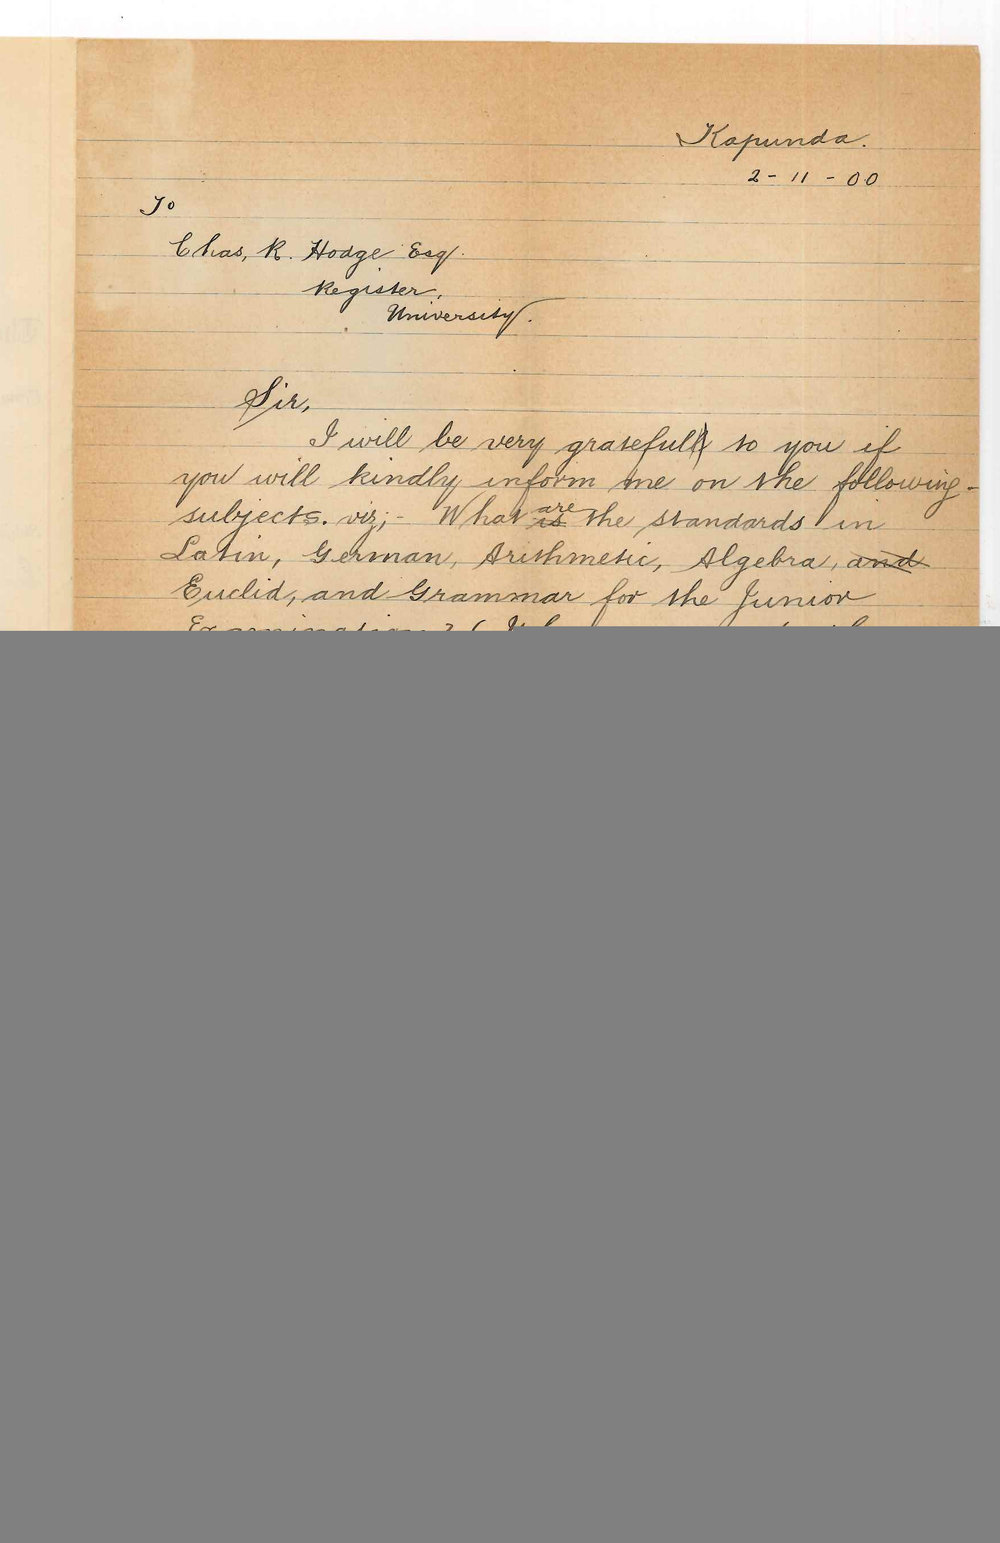 Kapunda.
2-11-00
To
Chas, R. Hodge Esq.
Register,
University.
Sir,
I will be very gratefull to you if
you will kindly inform me on the following-
subjects. viz;- What is are the standards in
Latin, German, Arithmetic, Algebra, and
Euclid, and Grammar for the Junior
Examination?